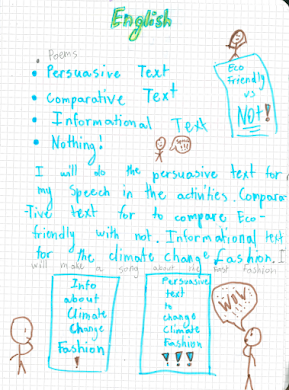 English
Poems
Persuasive Text
Comparative Text
Informational Text
Nothing!
Eco
Friendly
vs
NOT!
I will do the persuasive text for
my speech in the activities. Compara-
-tive text for to compare Eco-
friendly with not. Informational text
for the climate change fashion. I
will make a song about the fast fashion
Info
about
Climate
Change
Fashion
!
Persuasive
text
to
change
Climate
Fashion
!!!
WOW